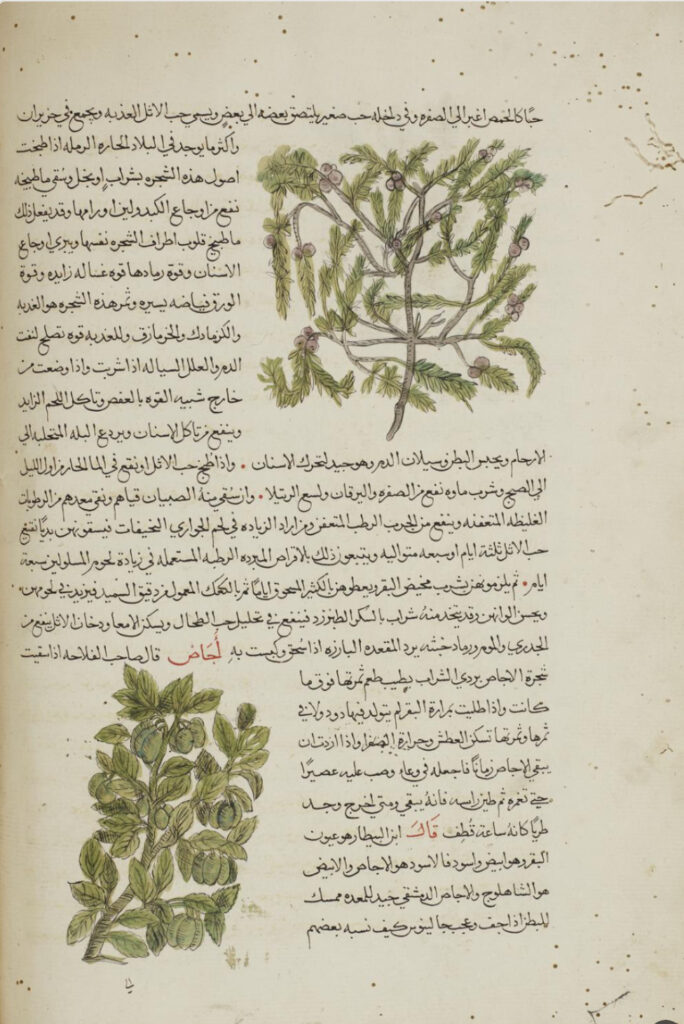 حبا كالحمص اغبر الي الصفره وفي داخله حب صغير ملتصق بعضه الي بعض ويسمي حب الاثل العذبه ويجمع في حزيران
واكثر ما يوجد في البلاد الحاره الرمله اذا طبخت
اصول هذه الشجره بشراب او بخل وسقي ما طبيخه
نفع من اوجاع الكبد ولين اورامها وقد يفعل ذلك
ما طبيخ قلوب اطراف الشجره نفسها ويبري اوجاع
الاسنان وقوة رمادها قوه غساله زايده وقوة
الورق قباضه يسيره وثمر هذه الشجره هو العذبه
والكزمازك والجزمازق وللعذبه قوه تصلح لنفث
الدم والعلل السياله اذا شربت واذا وضعت من
خارج شبيه القوه بالعفص وتاكل اللحم الزايد
وينفع من تاكل الاسنان ويردع البله المتحلبه الي
الارحام ويحبس البطن وسيلان الدم وهو جيد لتحرك الاسنان واذا طبخ حب الاثل او نقع في الما الحار من اول الليل
الي الصبح وشرب ماوه نفع من الصفره واليرقان ولسع الرتيلا وان سقي منه الصبيان قياهم ونقي معدهم من الرطوبات
الغليظه المتعفنه وينفع من الجرب الرطب المتعفن ومن اراد الزياده في لحم الجواري النحيفات فيسقوهن بديا نقيع
حب الاثل ثلثة ايام او سبعه متواليه ويتبعوا ذلك بالاقراص المبرده الرطبه المستعمله في زيادة لحوم المسلولين سبعة
ايام ثم يلزمونهن شرب مخيض البقر ويعطوهن بالكثير المسحوق اياما ثم بالكعك المعمول من دقيق السميد فيزيد في لحومهن
ويحسن الوانهن وقد يتخذ منه شراب بالسكر الطبرزد فينفع في تحليل صلب الطحال ويسكن الامعا ودخان الاثل ينفع من
الجدري والموم ورماد خشبه يرد المقعده البارزه اذا سحق وكبست به أجاص قال صاحب الفلاحه اذا سقيت
شجرة الاجاص بردي الشراب يطيب طعم ثمرتها فوق ما
كانت واذا طليت بمرارة البقر لم يتولد فيها دود ولا في
ثمرها وثمرتها تسكن العطش وحرارة الصفرا واذا اردت ان
يبقي الاجاص زمانا فاجعله في وعا وصب عليه عصيرا
حتي تغمره ثم طين راسه فانه يبقي ومتي اخرج وجد
طريا كانه ساعة قطف قال ابن البيطار هو عيون
البقر وهو ابيض واسود فالاسود هو الاجاص والابيض
هو الشاهلوج والاجاص الدمشقي جيد للمعده ممسك
للبطن اذا جف وعجب جالينوس كيف نسبه بعضهم